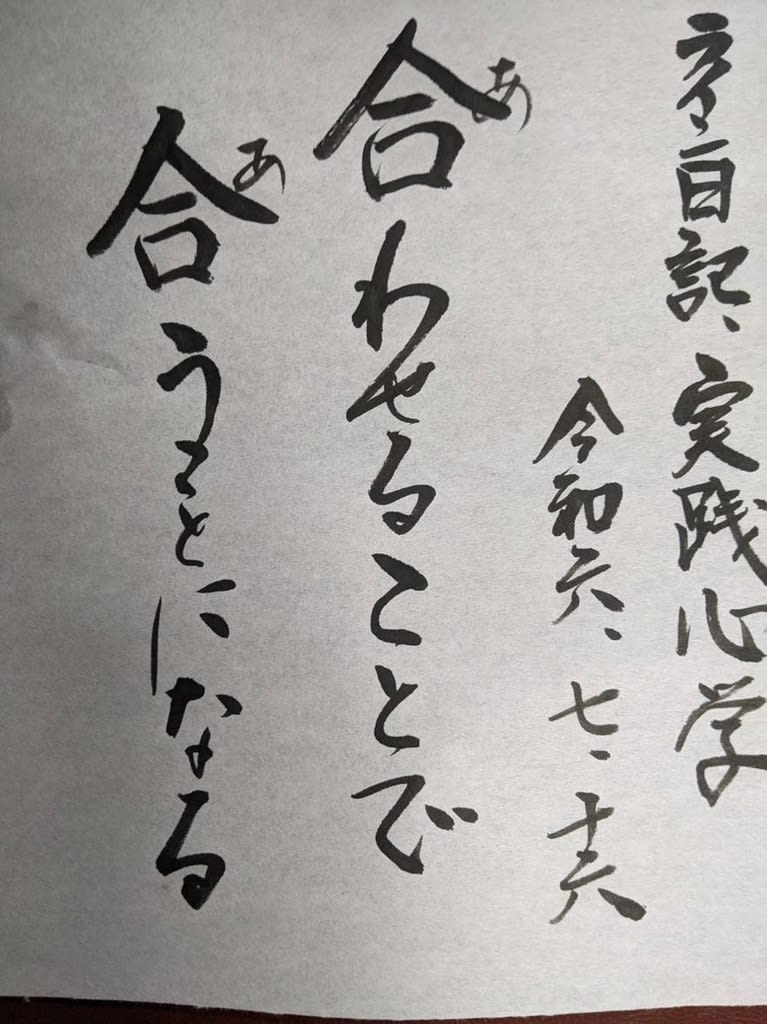 日記、実践心学
令和六、七、十六
あ
合わせることで
あ
合うことになる